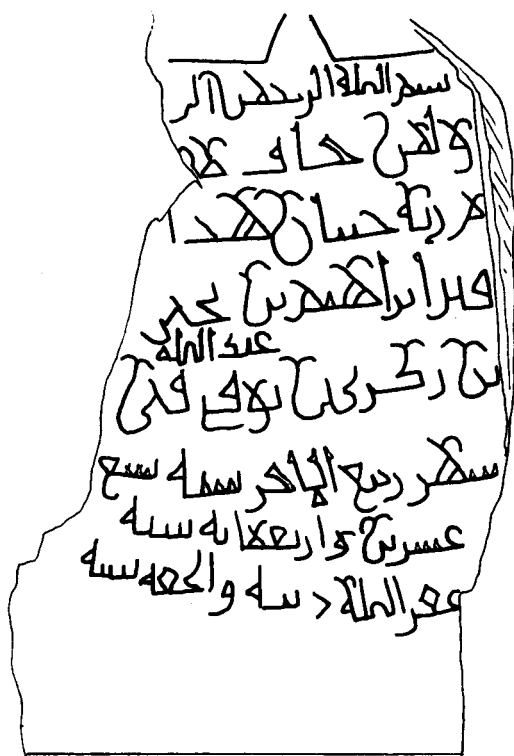 بسم الله الرحمن الر
ولمن خاف مق
م ربه جنتان هذا
قبر ابراهيم بن يحيى
عبد الله
بن زكرى بن توفي في
شهر ربيع الاخر سنه سبع
عشرين و اربعمايه سنه
غفر الله ذنبه والحقه بنبيه